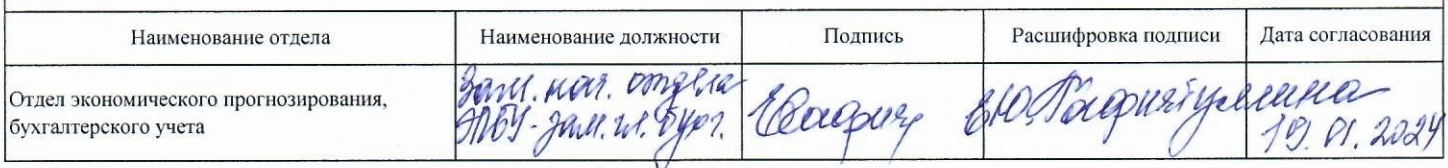 Наименование отдела Наименование должности Подпись Расшифровка подписи Дата согласования
Отдел экономического прогнозирования,
бухгалтерского учета
Зам. нач. отдела
ЭПБУ - зам. гл. бухг.
Е.Ю. Гафиятуллина
19.01.2024